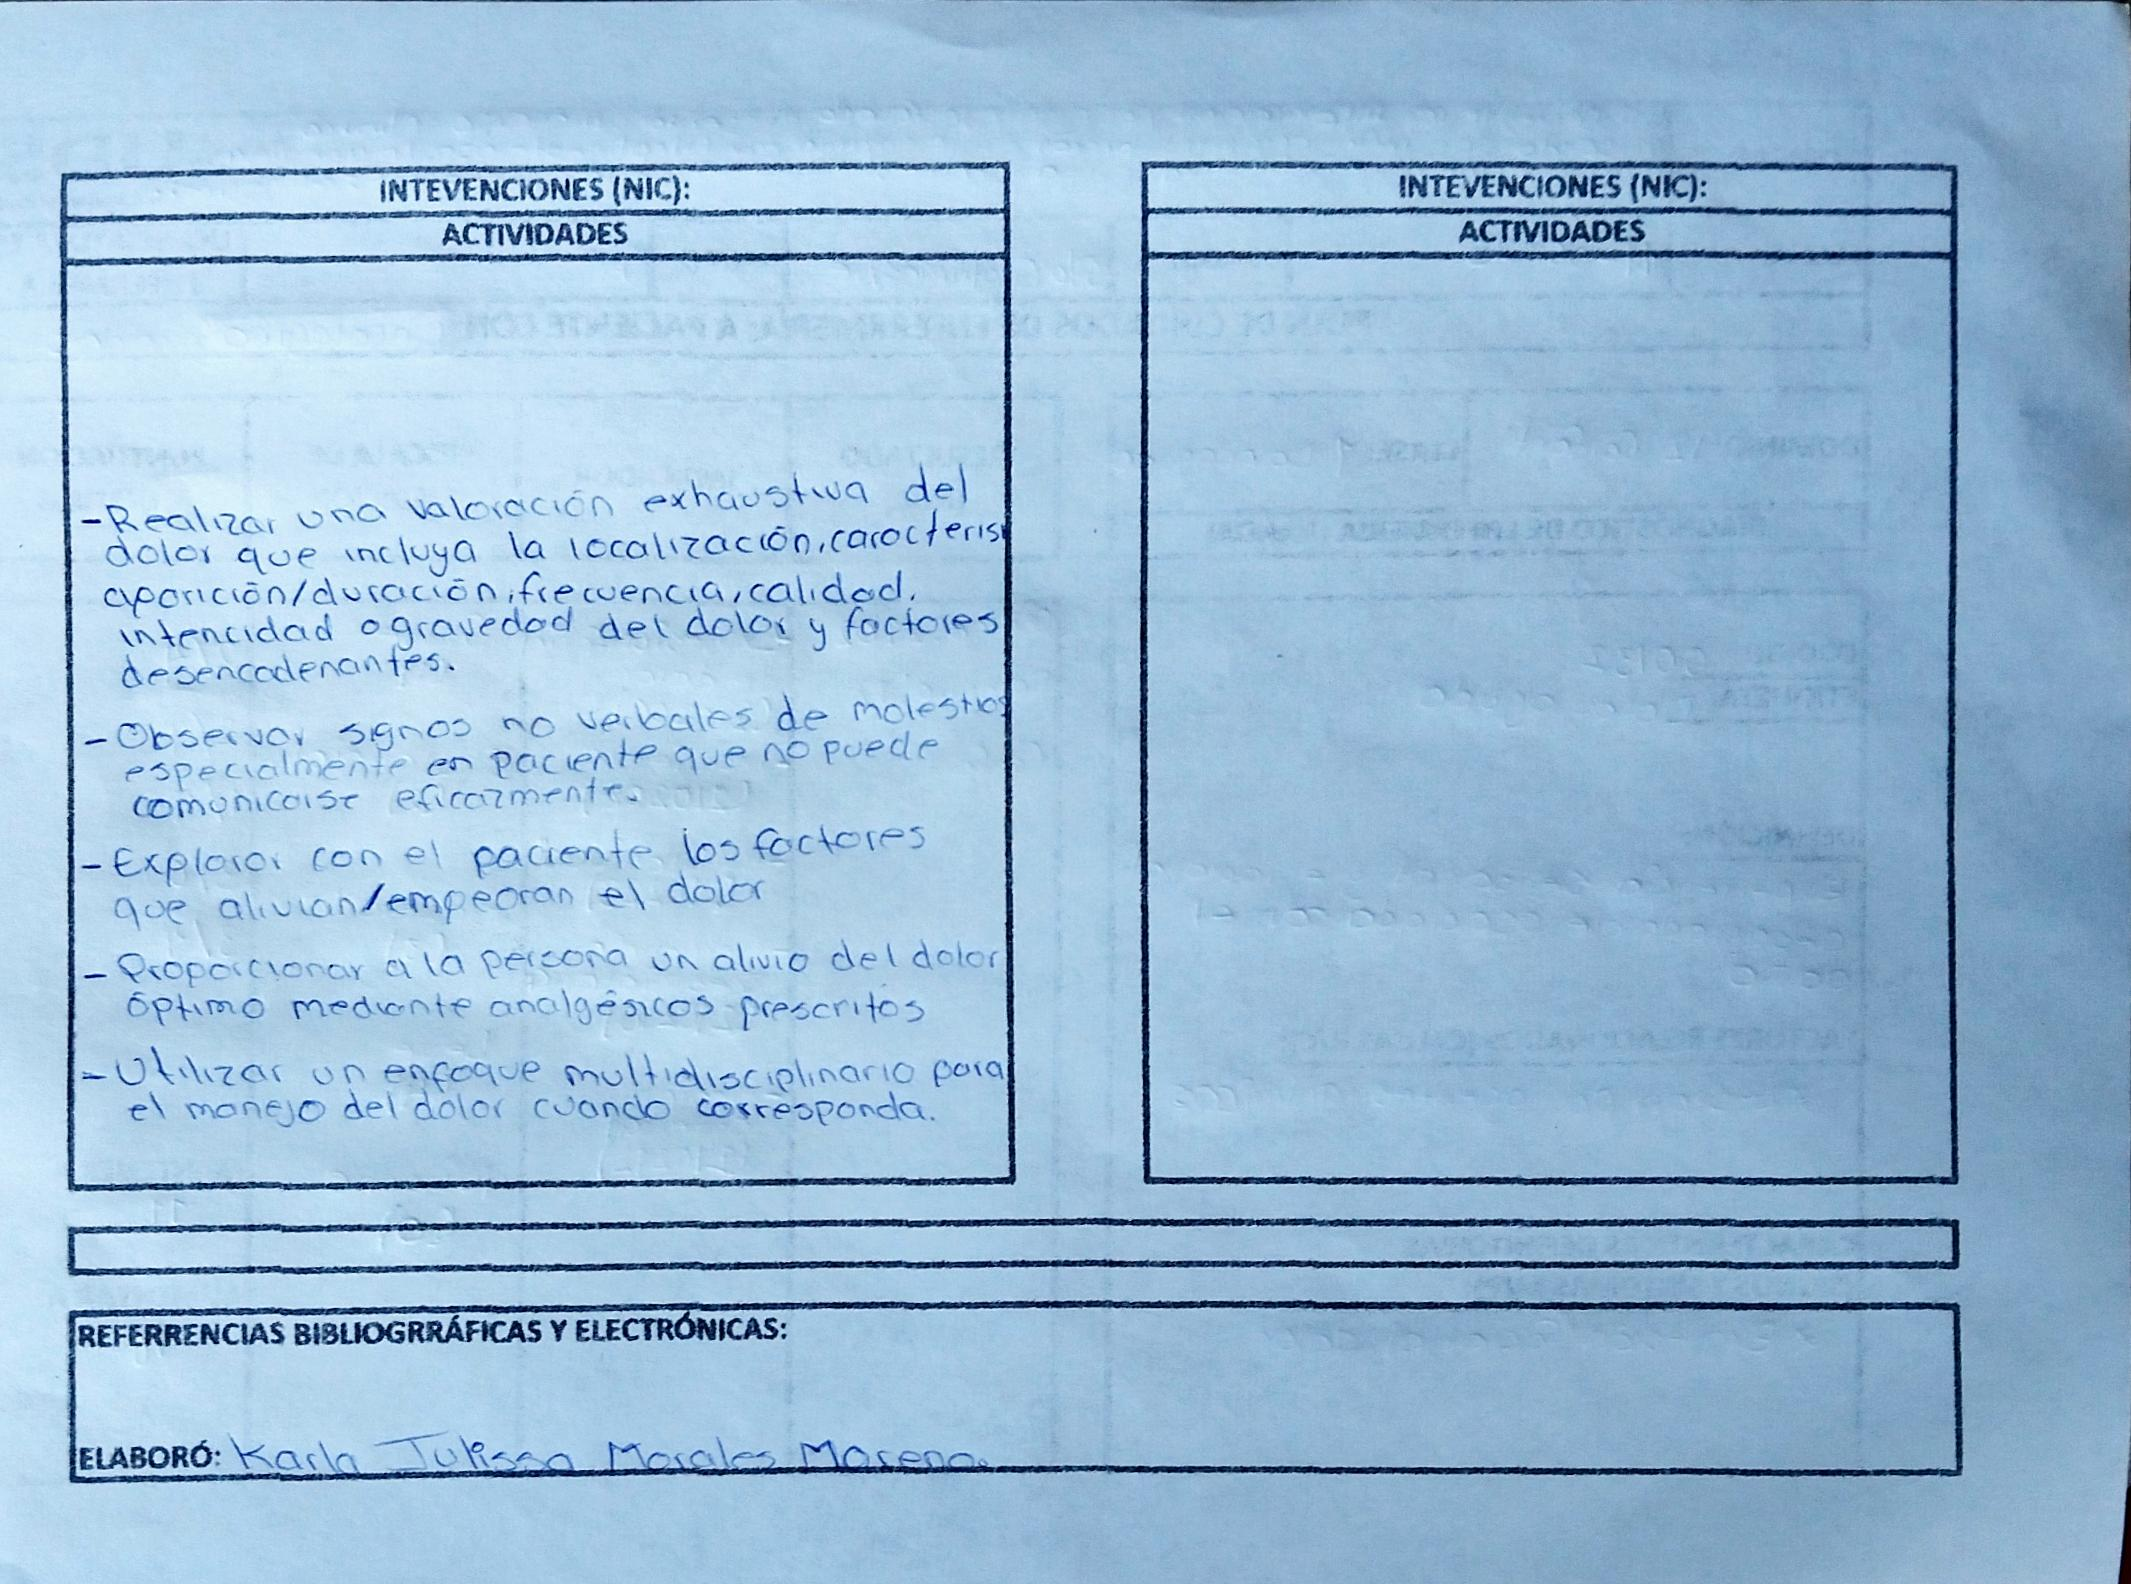 INTEVENCIONES (NIC):
ACTIVIDADES
-Realizar una valoración exhaustiva del
dolor que incluya la localización, caracteris
aparición/duración, frecuencia, calidad,
intencidad o gravedad del dolor y factores
desencadenantes.
-Observar signos no verbales de molestias
especialmente en paciente que no puede
comunicarse eficazmente.
-Explorar con el paciente los factores
que alivian/empeoran el dolor
-Proporcionar a la persona un alivio del dolor
óptimo mediante analgésicos prescritos
-Utilizar un enfoque multidisciplinario para
el manejo del dolor cuando corresponda.
INTEVENCIONES (NIC):
ACTIVIDADES
REFERRENCIAS BIBLIOGRRÁFICAS Y ELECTRÓNICAS:
ELABORÓ: Karla Julissa Morales Moreno.